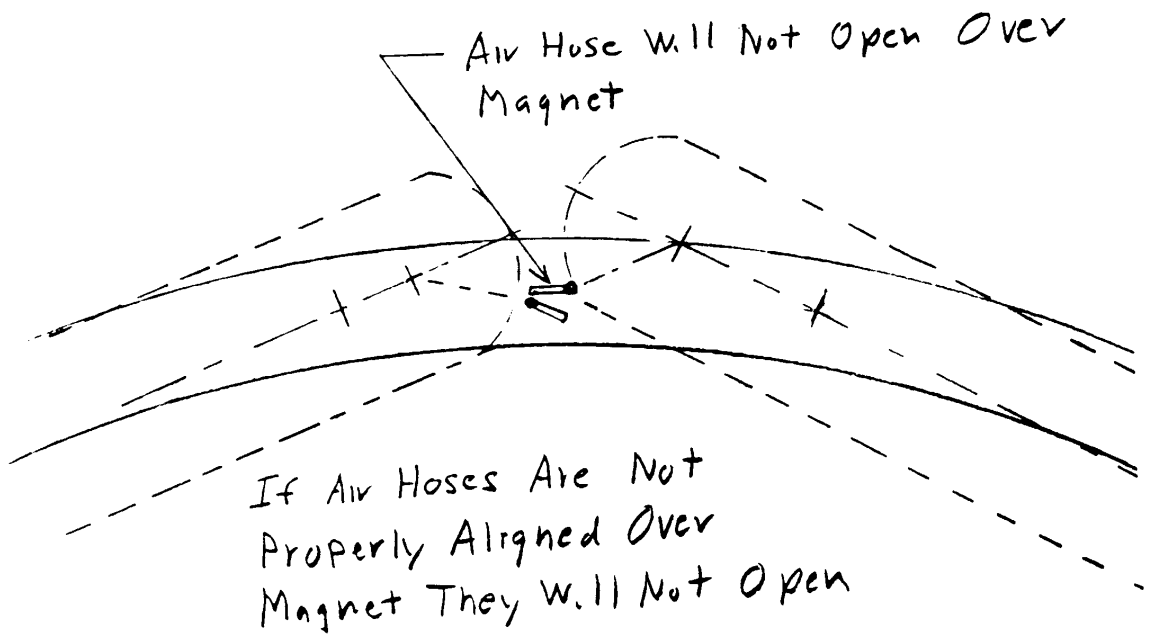 Air Hose Will Not Open Over
Magnet
If Air Hoses Are Not
Properly Aligned Over
Magnet They Will Not Open